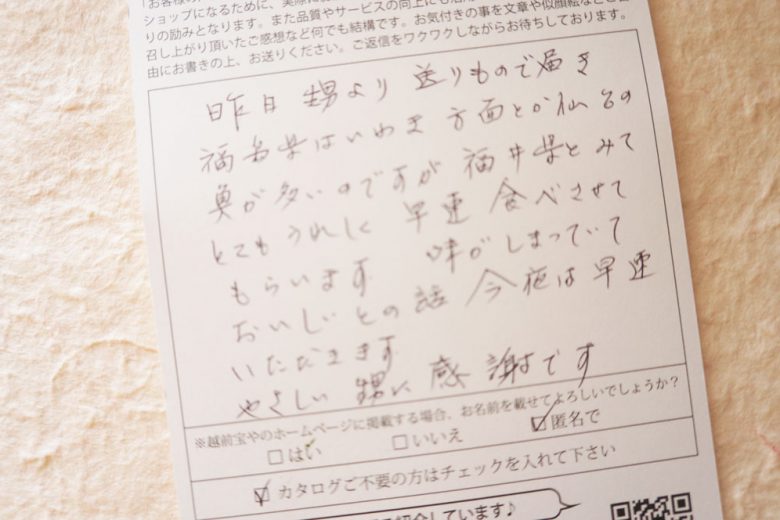 ショップになるために、実際に
りの励みとなります。また品質やサービスの向上にも活用
召し上がり頂いたご感想など何でも結構です。お気付きの事を文章や似顔絵などご自
由にお書きの上、お送りください。ご返信をワクワクしながらお待ちしております。
昨日 甥より 送りもので届き
福島県はいわき 方面とか仙台の
魚が多いのですが 福井県とみて
とてもうれしく 早速 食べさせて
もらいます 味がしまっていて
おいしいとの話 今夜は早速
いただきます
やさしい 甥に 感謝です
※越前宝やのホームページに掲載する場合、お名前を載せてよろしいでしょうか?
□はい □いいえ ☑匿名で
☑カタログご不要の方はチェックを入れて下さい
紹介しています♪